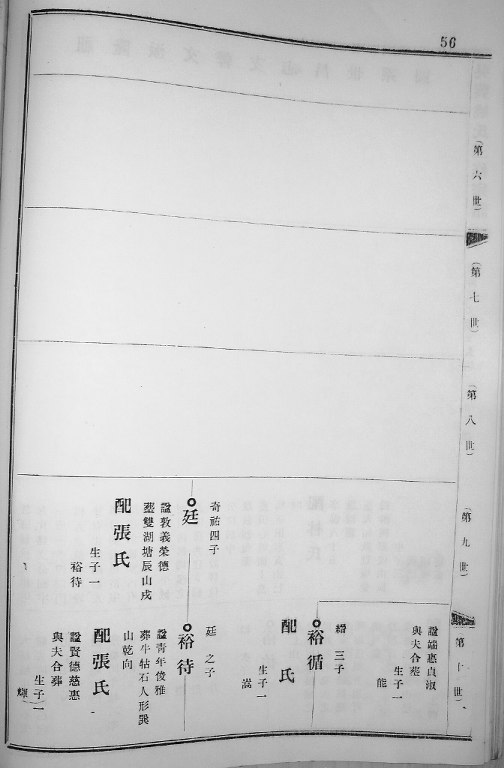 56
(第六世)
(第七世)
(第八世)
(第九世)
(第十世)
諡端惠貞淑
與夫合葬
生子一
能
縉三子
裕循
配 氏
生子一
嵩
奇祐四子
廷
諡敦義榮德
葬雙湖塘辰山戌
配張氏
生子一
裕待
廷之子
裕待
諡青年俊雅
葬牛牯石人形巽
山乾向
配張氏
諡賢德慈惠
與夫合葬
生子一